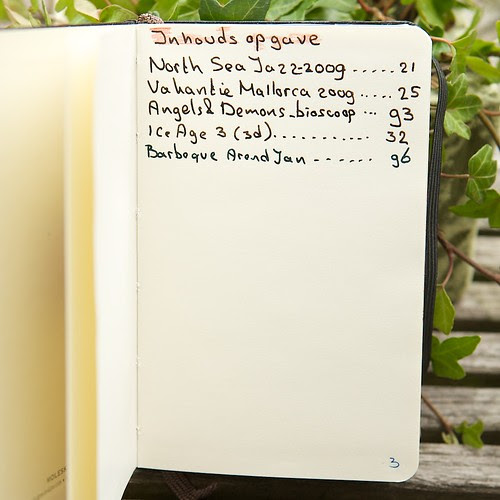 Inhouds opgave
North Sea Jazz-2009 ..... 21
Vakantie Mallorca 2009 ..... 25
Angels & Demons_bioscoop ... 93
Ice Age 3 (3d)........... 32
Barbeque Arend Jan ------- 96
3